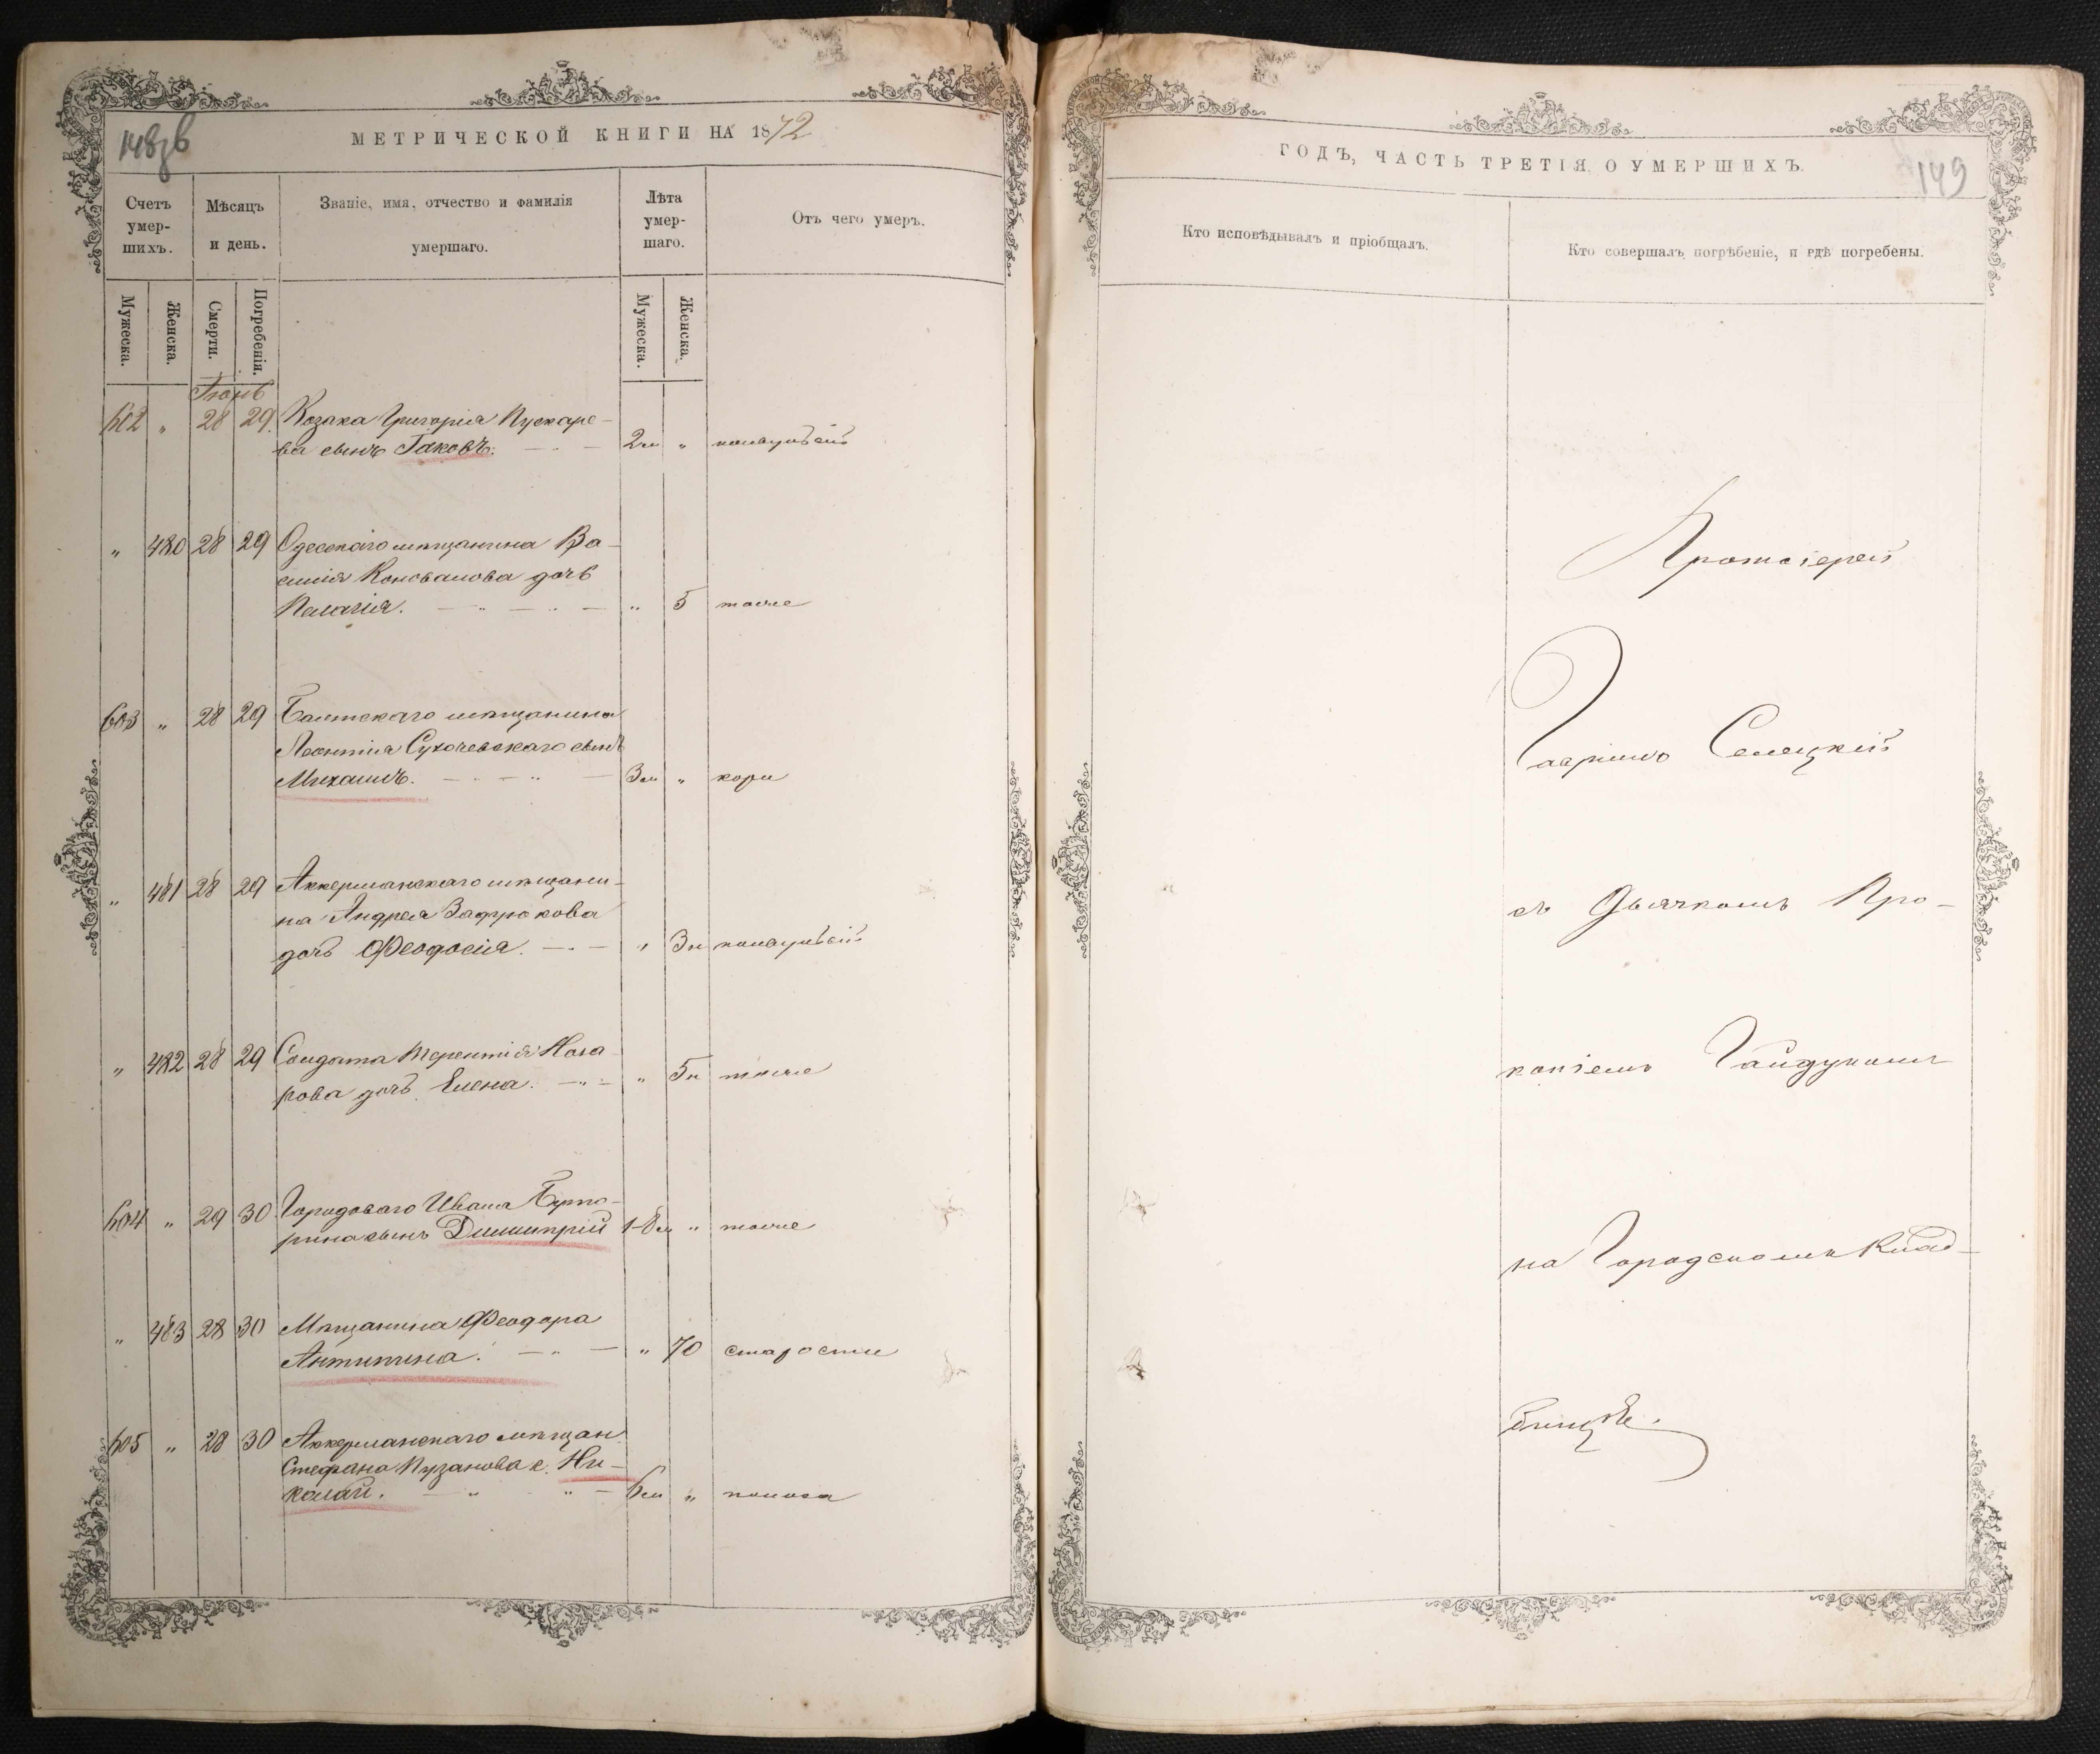 148зв
МЕТРИЧЕСКОЙ КНИГИ НА 1872
Счетъ умер-шихъ.
Мѣсяцъ и день.
Званіе, имя, отчество и фамилія умершаго.
Лѣта умер-шаго.
Отъ чего умеръ.
Мужеска.
Женска.
Смерти.
Погребенія.
Мужеска.
Женска.
Іюнь
602 " 28 29 Козака Григорія Пускаре-
ва сынъ Іаковъ. 2м " конвульсій
" 480 28 29 Одесскаго мѣщанина Ва-
силія Коновалова дочь
Пелагія. " 5 тоже
603 " 28 29 Балтскаго мѣщанина
Леонтія Сухочевскаго сынъ
Михаилъ. 3м " кори
" 481 28 29 Аккерманскаго мѣщани-
на Андрея Зафрокова
дочь Феодосія. " 3н конвульсій
" 482 28 29 Солдата Терентія Наза-
рова дочь Елена. " 5н тоже
604 " 29 30 Городоваго Ивана
сынъ Димитрій 1-8м " тоже
" 483 28 30 Мѣщанина Феодора
Антипина. " 70 старости
605 " 28 30 Аккерманскаго мѣщан
Стефана Пузанова с. Ни-
колай. 6м " поноса
149
ГОДЪ, ЧАСТЬ ТРЕТІЯ О УМЕРШИХЪ.
Кто исповѣдывалъ и пріобщалъ.
Кто совершалъ погрѣбеніе, и гдѣ погребены.
Протоіерей
Гавріилъ Селецкій
съ Дьячкомъ Про-
копіемъ Гайдукомъ
на Городскомъ Клад-
бищѣ.